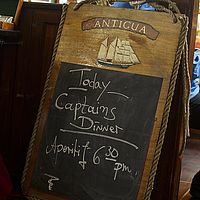 ANTIGUA
Today
Captains
Dinner
Aperitif 6 30
pm